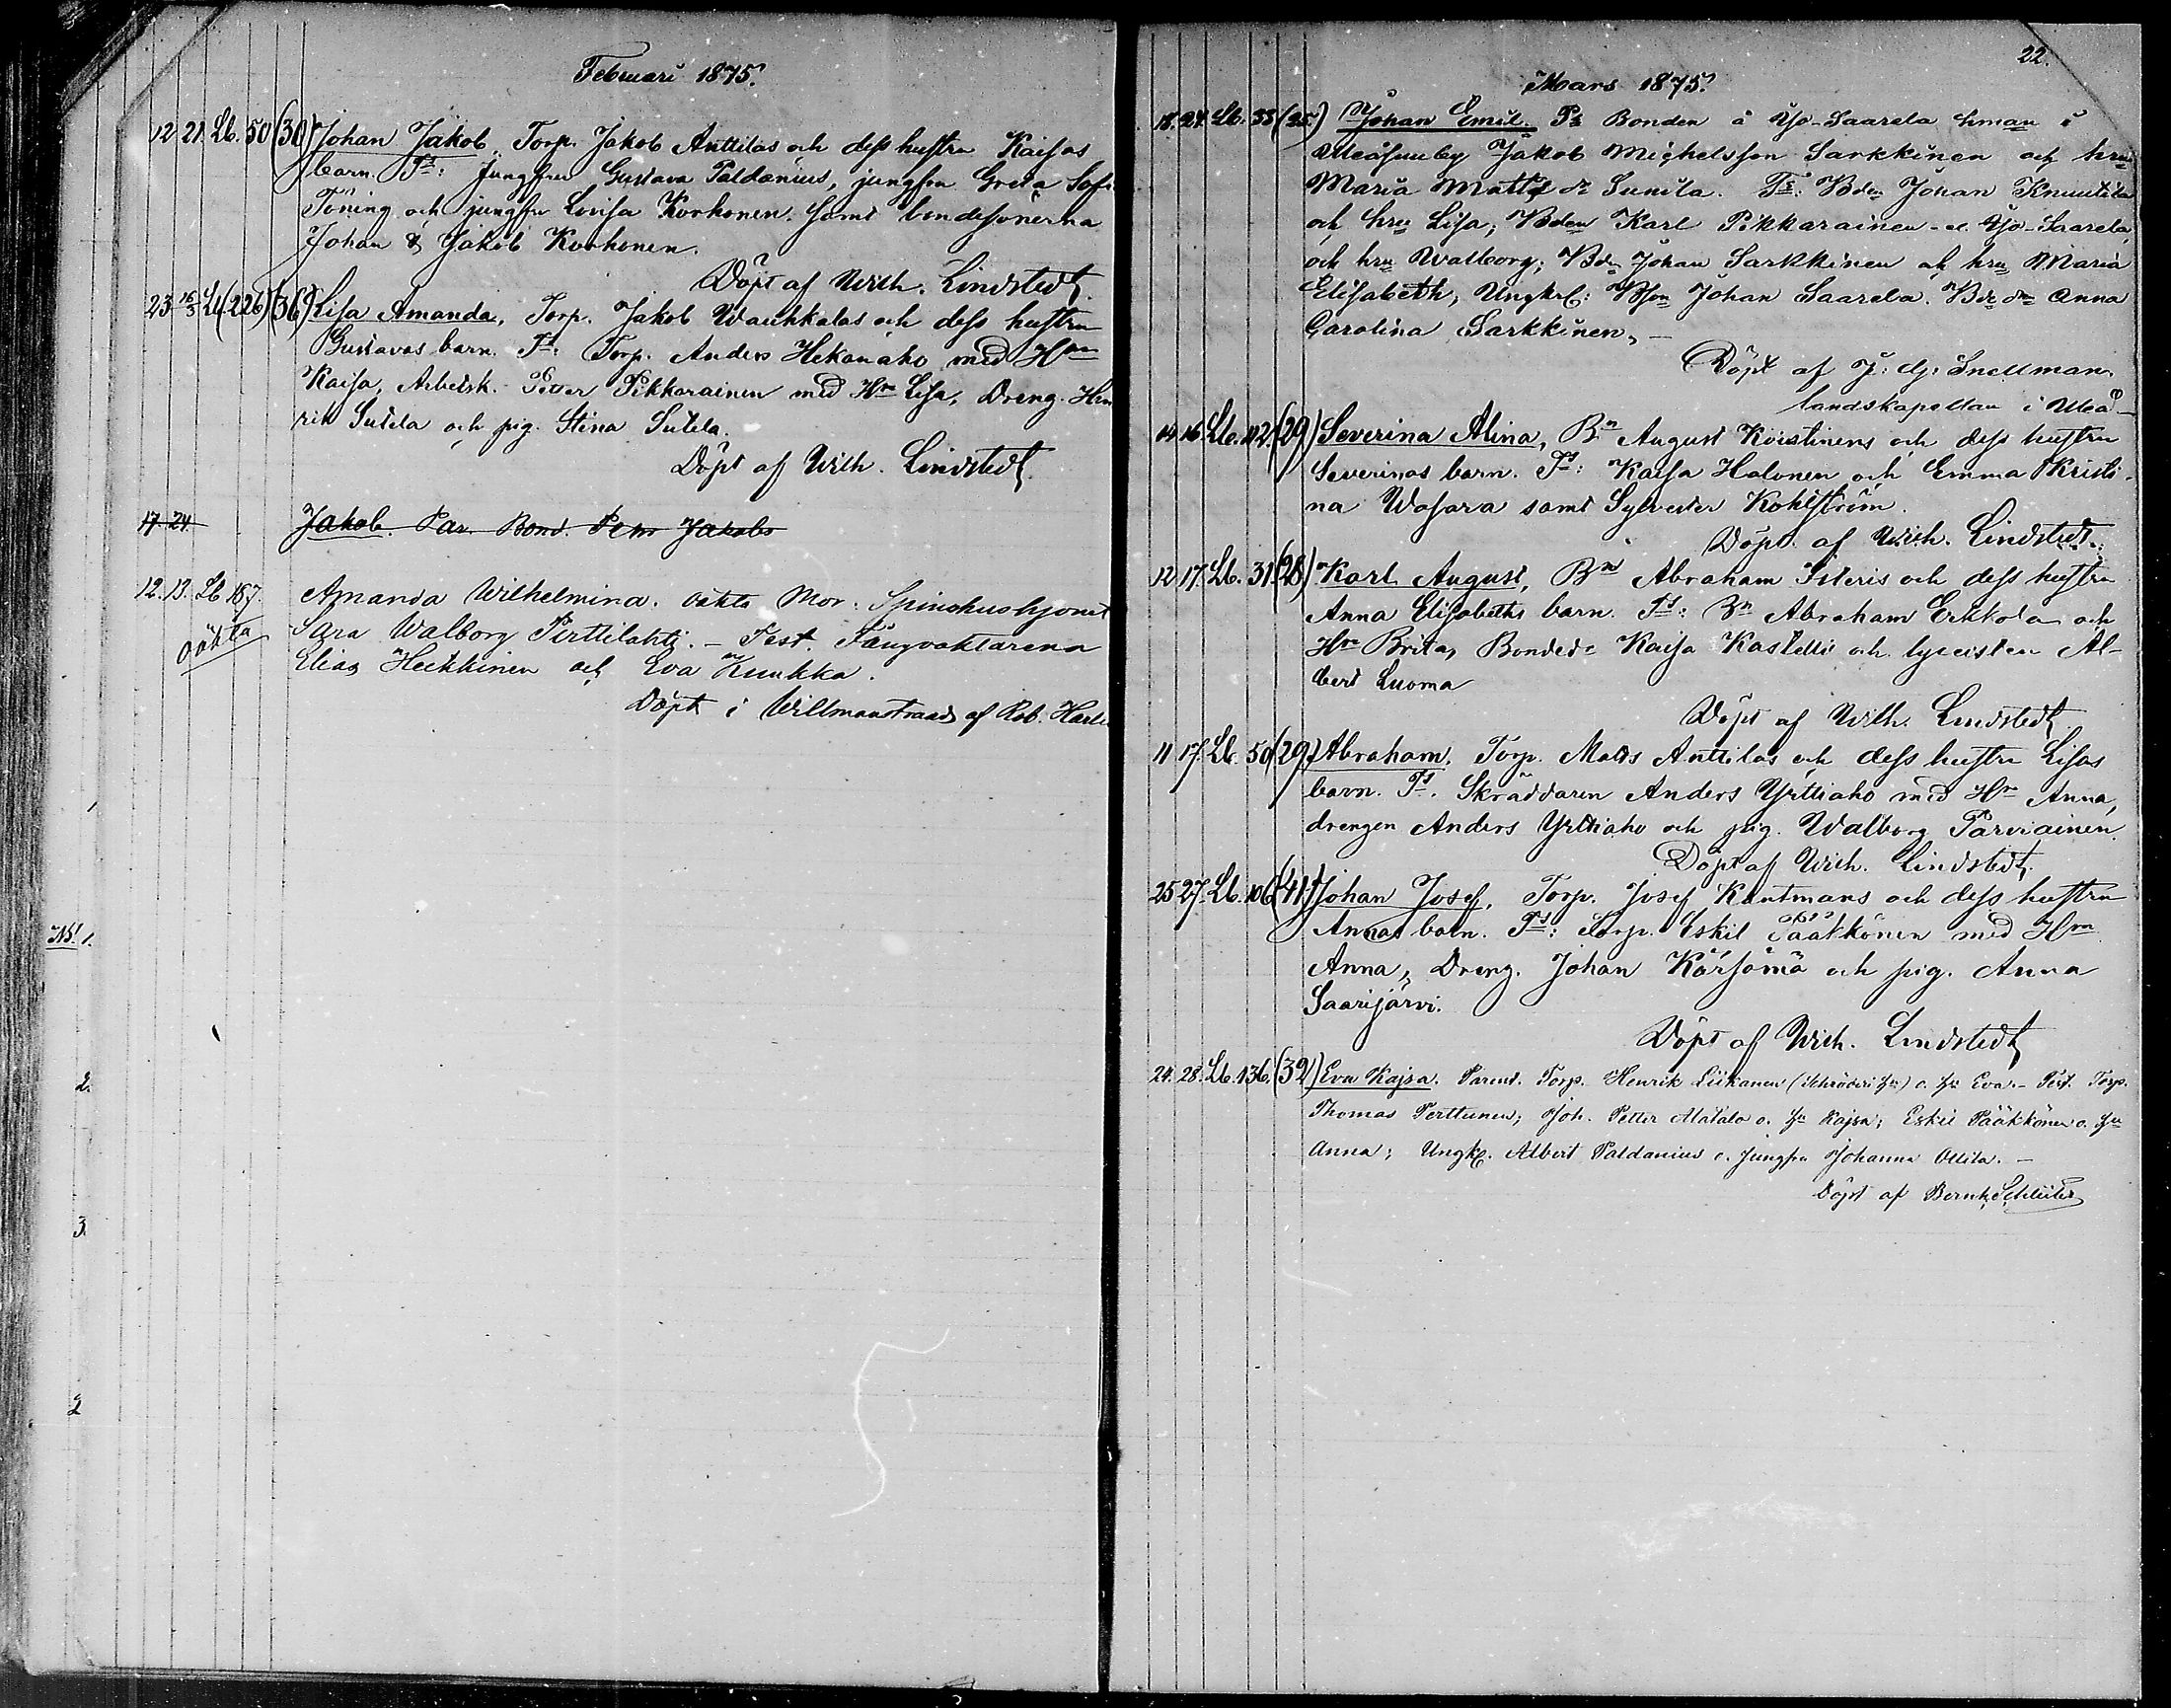 Februari 1875.
12 21. Lb. 50 (30) Johan Jakob, Torp. Jakob Anttilas och dess hustru Kaisas
barn. Ts: Jungfru Gustava Paldanius, jungfru Greta Sofi
Töning och jungfru Lovisa Korhonen. samt bondesönerna
Johan & Jakob Korhonen.
Döpt af Wilh. Lindstedt.
23 16/3 Lb (226) (36) Lisa Amanda, Torp. Jakob Wauhkalas och dess hustru
Gustavas barn. Ts: Torp. Anders Hekanaho med Hru
Kaisa, Arbetsk. Petter Pikkarainen med Hru Lisa, Dreng. Hen
rik Sutela och pig. Stina Sutela.
Döpt af Wilh. Lindstedt.
17. 24. Jakob. Par. Bond. Petr Jakobs
12. 13. Lb 187. Amanda Wilhelmina. oäkta Mor: Spinohushjonet
oäkta Sara Walborg Pirttilahti. - Test. Fångvaktarena
Elias Heikkinen och Eva Kuukka.
Döpt i Willmanstrand af Rob. Harl
NB! 1.
2.
3.
2
22.
Mars 1875.
18. 24. Lb. 33 (25) Johan Emil. Ps Bonden å Yjo-Saarela hman i
Uleåsuuby Jakob Michelsson Sarkkinen och hru
Maria Mattsdr Sunila. Ts. Bden Johan Knuutila
och hru Lisa, Bden Karl Pikkarainen - Yjo-Saarela,
och hru Walborg; Bdn Johan Sarkkinen och hru Maria
Elisabeth, Ungkrl: Bson Johan Saarela. Bdedr Anna
Carolina Sarkkinen, -
Döpt af J. Snellman.
landskapellan i Uleå
14 16 Lb. 112. (29) Severina Alina, Bn August Koistinens och dess hustru
Severinas barn. Ts: Kaisa Halonen och Emma Kristi-
na Wasara samt Sylvester Kohlström.
Döpt af Wilh. Lindstedt.
12 17. Lb. 31. (28) Karl August, Bns Abraham Isteris och dess hustru
Anna Elisabeths barn. Ts: Bn Abraham Erkkola och
Hru Brita, Bonded: Kaisa Kastelli och lyceisten Al-
bert Luoma
Döpt af Wilh. Lindstedt
11 17. Lb. 50 (29) Abraham, Torp. Matts Anttilas och dess hustru Lisas
barn. Ts. Skräddaren Anders Yrttiaho med Hru Anna,
drengen Anders Yrttiaho och pig. Walborg Parviainen.
Döpt af Wilh. Lindstedt.
25 27. Lb. 106 (41) Johan Josef, Torp. Josef Kautmans och dess hustru
Annas barn. Ts: Torp. Eskil Pääkkönen med Hru
Anna, Dreng. Johan Kärsämä och pig. Anna
Saarijärvi.
Döpt af Wilh. Lindstedt
24. 28. Lb. 136. (32) Eva Kajsa. Parent. Torp. Henrik Liikanen (Schröderi) o. hu Eva. - Test. Torp.
Thomas Perttunen; Joh. Petter Matala o. hu Kajsa; Eskil Pääkkönen o. hu
Anna; Ungk. Albert Paldanius o. jungfru Johanna Ollila. -
Döpt af Bernh. Schlüter